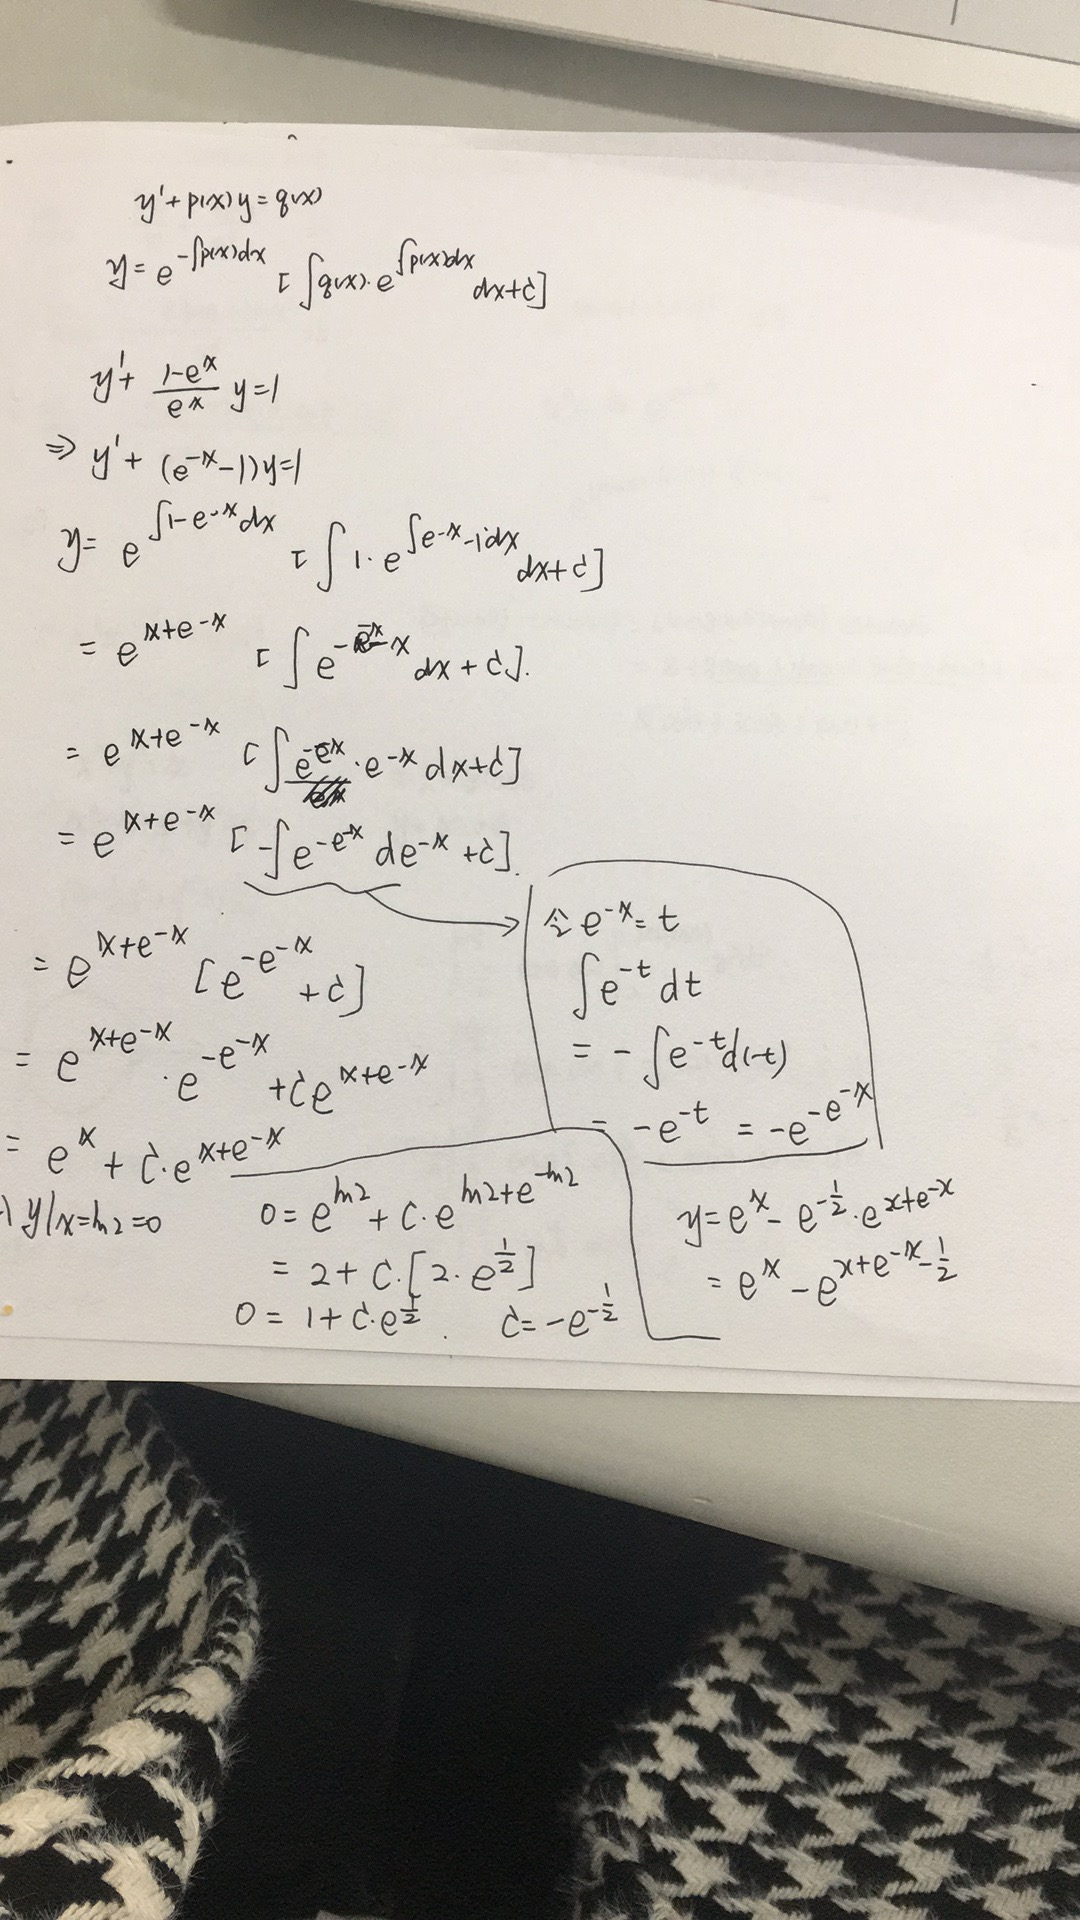 y' + p(x)y = q(x)
y = e^{-∫p(x)dx} [∫q(x)·e^{∫p(x)dx} dx + C]
y' + \frac{1-e^x}{e^x} y = 1
⇒ y' + (e^{-x} - 1)y = 1
y = e^{∫1-e^{-x}dx} [∫1·e^{∫e^{-x}-1dx} dx + C]
= e^{x+e^{-x}} [∫e^{-e^{-x}-x} dx + C].
= e^{x+e^{-x}} [∫e^{-e^{-x}}·e^{-x} dx + C]
= e^{x+e^{-x}} [-∫e^{-e^{-x}} de^{-x} + C].
令 e^{-x} = t
∫e^{-t} dt
= -∫e^{-t}d(-t)
= -e^{-t} = -e^{-e^{-x}}
= e^{x+e^{-x}} [e^{-e^{-x}} + C]
= e^{x+e^{-x}}·e^{-e^{-x}} + Ce^{x+e^{-x}}
= e^x + C·e^{x+e^{-x}}
y|x=ln2=0
0 = e^{ln2} + C·e^{ln2+e^{-ln2}}
= 2 + C·[2·e^{\frac{1}{2}}]
0 = 1 + C·e^{\frac{1}{2}}. C = -e^{-\frac{1}{2}}
y = e^x - e^{-\frac{1}{2}}·e^{x+e^{-x}}
= e^x - e^{x+e^{-x}-\frac{1}{2}}